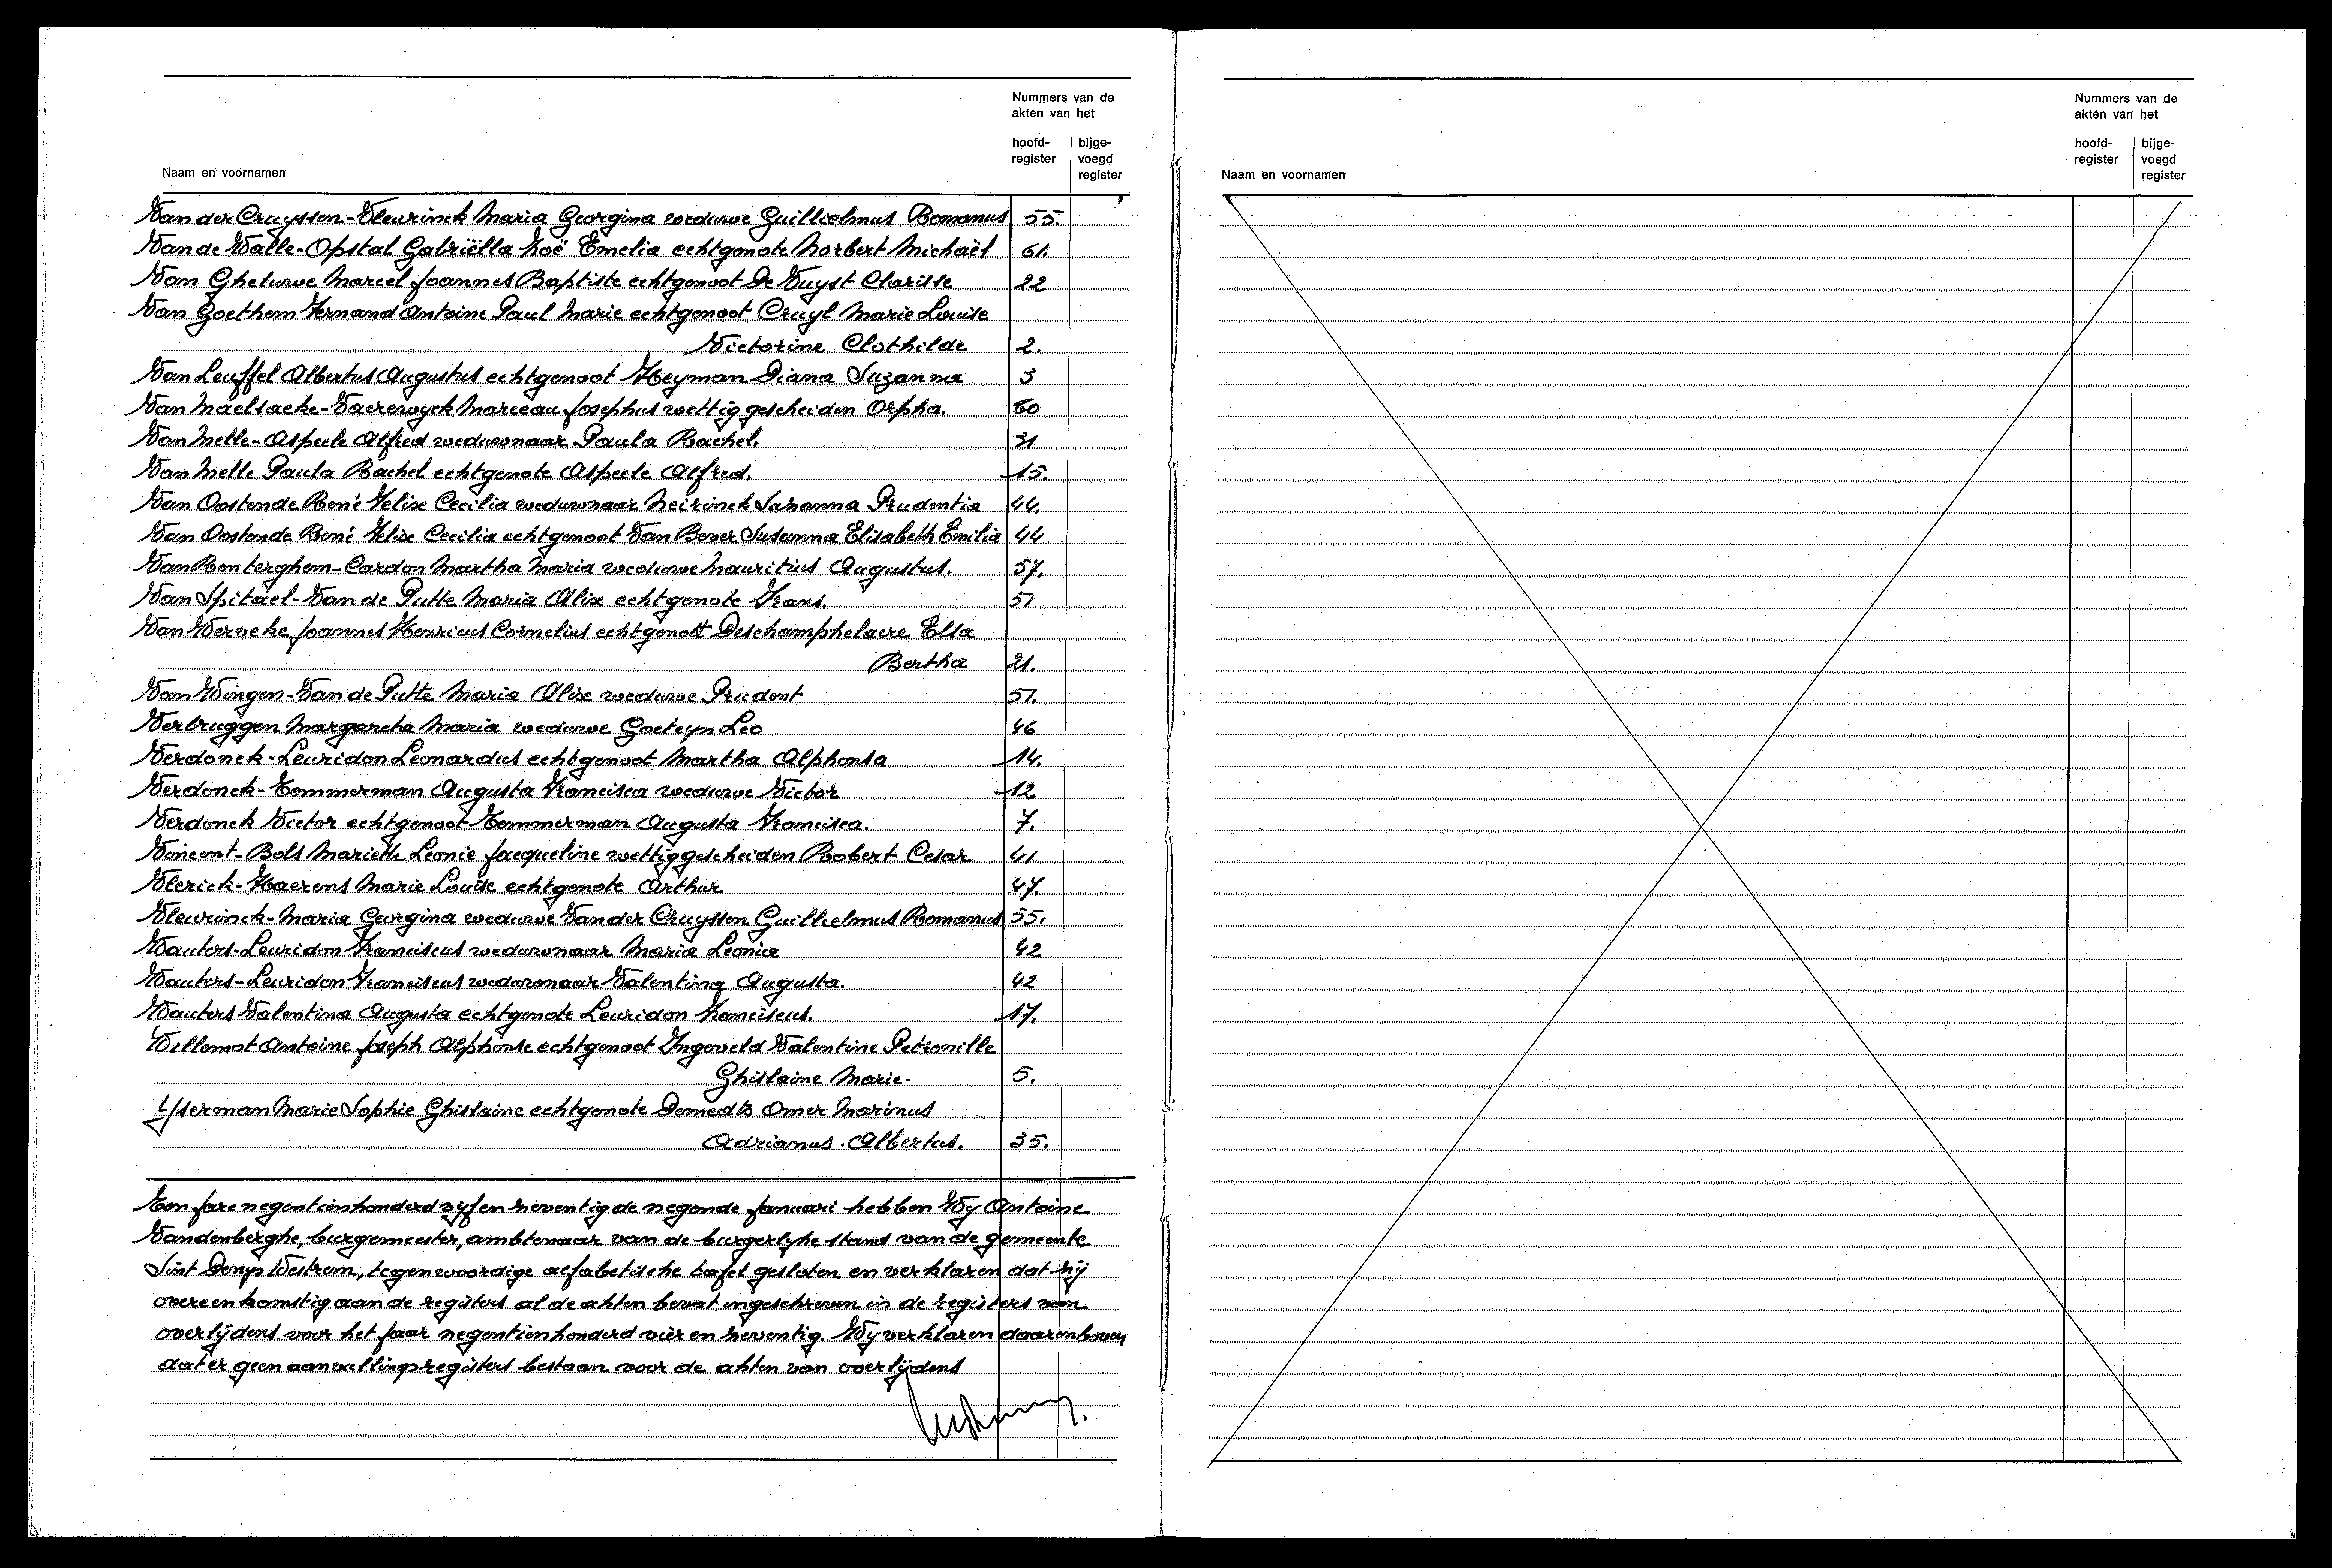 Nummers van de
akten van het
hoofd-
register
bijge-
voegd
register
Naam en voornamen
Van der Cruyssen-Vleurinck Maria Georgina weduwe Guillielmus Romanus 55.
Van de Walle-Opstal Gabriëlla Zoë Emelia echtgenote Norbert Michaël 61.
Van Gheluwe Marcel Joannes Baptiste echtgenoot De Vuyst Clarisse 22
Van Goethem Fernand Antoine Paul Marie echtgenoot Cruyl Marie Louise
Victorine Clothilde 2.
Van Leuffel Albertus Augustus echtgenoot Heyman Diana Suzanna 3
Van Maelsaeke-Vaerewyck Marceau Josephus wettig gescheiden Orpha. 60
Van Melle-Aspeele Alfred weduwnaar Paula Rachel. 31
Van Melle Paula Rachel echtgenote Aspeele Alfred. 15.
Van Oostende René Felix Cecilia weduwnaar Neirinck Suzanna Prudentia 44.
Van Oostende René Felix Cecilia echtgenoot Van Bever Susanna Elisabeth Emilia 44
Van Renterghem-Cardon Martha Maria weduwe Mauritius Augustus. 57.
Van Spitael-Van de Putte Maria Alix echtgenote Frans. 51
Van Werveke Joannes Henricus Cornelius echtgenott Deschamphelaere Elsa
Bertha 21.
Van Wingen-Van de Putte Maria Alix weduwe Prudent 51.
Verbruggen Margareta Maria weduwe Goeteyn Leo 46
Verdonck-Leuridon Leonardus echtgenoot Martha Alphonsa 14.
Verdonck-Temmerman Augusta Francisca weduwe Victor 12
Verdonck Victor echtgenoot Temmerman Augusta Francisca. 7.
Vincent-Bols Marieth Leonie Jacqueline wettig gescheiden Robert Cesar 41
Vlerick-Haerens Marie Louise echtgenote Arthur 47.
Vleurinck-Maria Georgina weduwe Van der Cruyssen Guillielmus Romanus 55.
Wauters-Leuridon Franciscus weduwnaar Maria Leonia 42
Wauters-Leuridon Franciscus weduwnaar Valentina Augusta. 42
Wauters Valentina Augusta echtgenote Leuridon Franciscus. 17.
Willemot Antoine Joseph Alphonse echtgenoot Ingeveld Valentine Petronille
Ghislaine Marie. 5.
Yserman Marie Sophie Ghislaine echtgenote Demedts Omer Marinus
Adrianus Albertus. 35.
Ten jare negentienhonderd vijf en zeventig de negende januari hebben Wy Antoine
Vandenberghe, burgemeester, ambtenaar van de burgerlyke stand van de gemeente
Sint Denys Westrem, tegenwoordige alfabetische tafel gesloten en verklaren dat zij
overeenkomstig aan de registers al de akten bevat ingeschreven in de registers van
overlijdens voor het jaar negentienhonderd vier en zeventig. Wy verklaren daarenboven
dat er geen aanvullingsregisters bestaan voor de akten van overlijdens
Nummers van de
akten van het
hoofd-
register
bijge-
voegd
register
Naam en voornamen